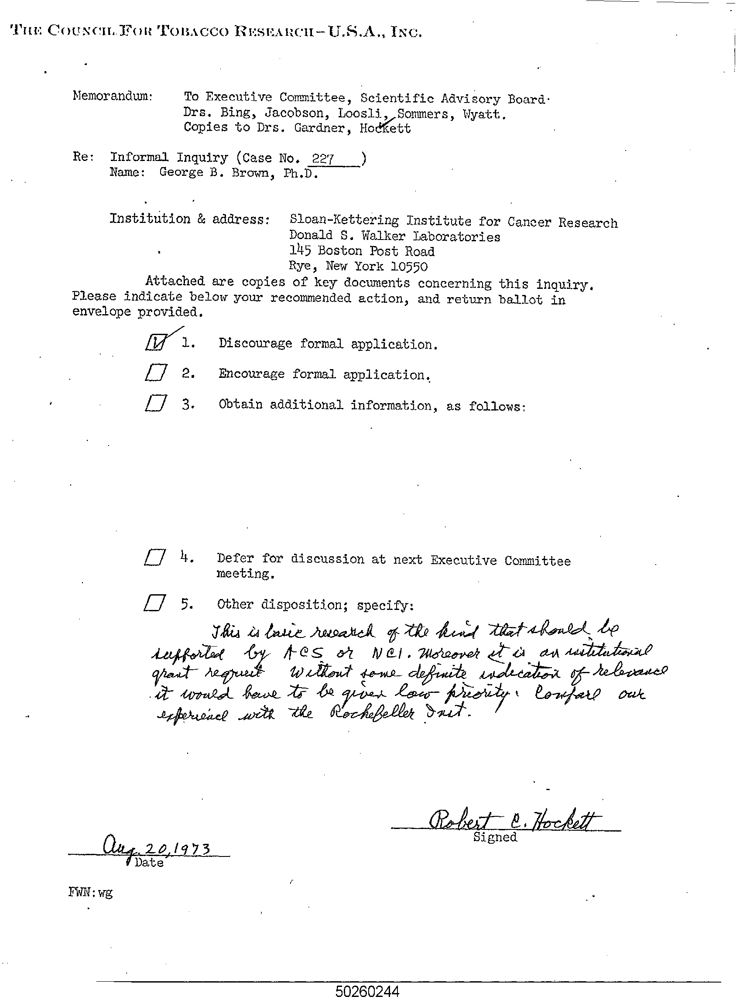 THE COUNCIL FOR TOBACCO RESEARCH-U.S.A., INC.
Memorandum: To Executive Committee, Scientific Advisory Board.
Drs. Bing, Jacobson, Loosli, Sommers, Wyatt.
Copies to Drs. Gardner, Hockett
Re: Informal Inquiry (Case No. 227 )
Name: George B. Brown, Ph.D.
Institution & address: Sloan-Kettering Institute for Cancer Research
Donald S. Walker Laboratories
145 Boston Post Road
Rye, New York 10550
Attached are copies of key documents concerning this inquiry.
Please indicate below your recommended action, and return ballot in
envelope provided.
1. Discourage formal application.
2. Encourage formal application.
3. Obtain additional information, as follows:
4. Defer for discussion at next Executive Committee
meeting.
5. Other disposition; specify:
This is basic research of the kind that should be
supported by ACS or NCI. Moreover it is an institutional
grant request Without some definite indication of relevance
it would have to be given low priority. Compare our
experience with the Rockefeller Inst.
Robert C. Hockett
Signed
Aug. 20, 1973
Date
FWN:wg
50260244